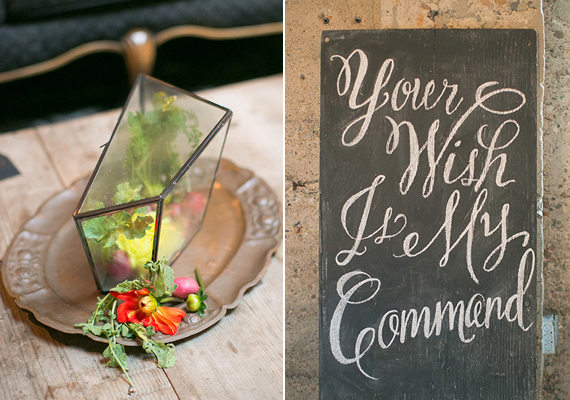 Your
Wish
Is My
Command